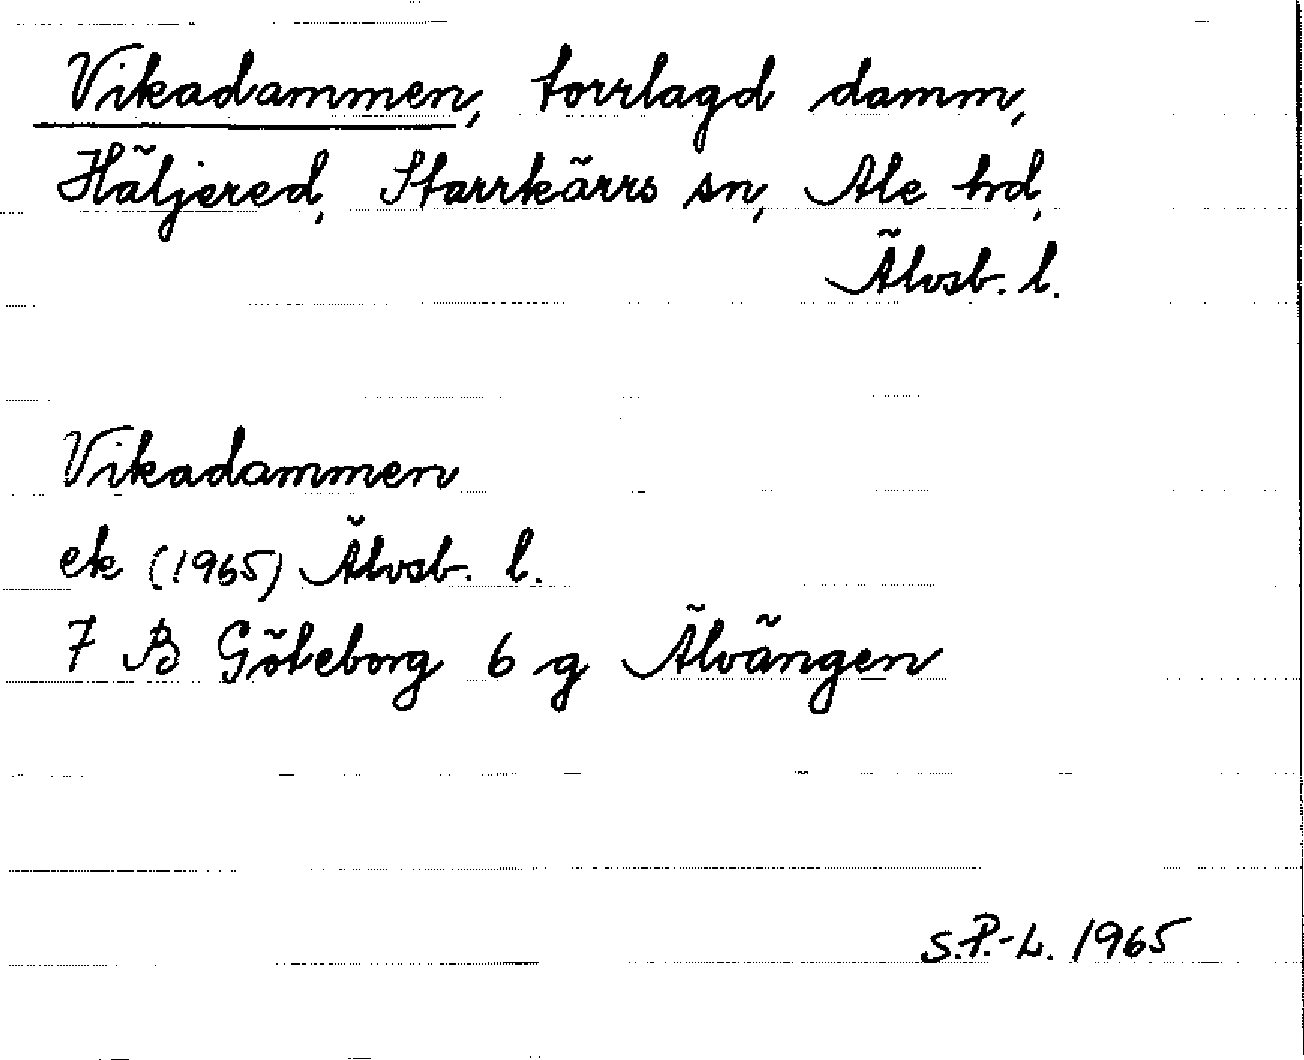 Vikadammen, torrlagd damm,
Häljered, Starrkärrs sn, Ale hd,
Älvsb. l.
Vikadammen
ek (1965) Älvsb. l.
7 B Göteborg 6 g Älvängen
S.P.-L. 1965